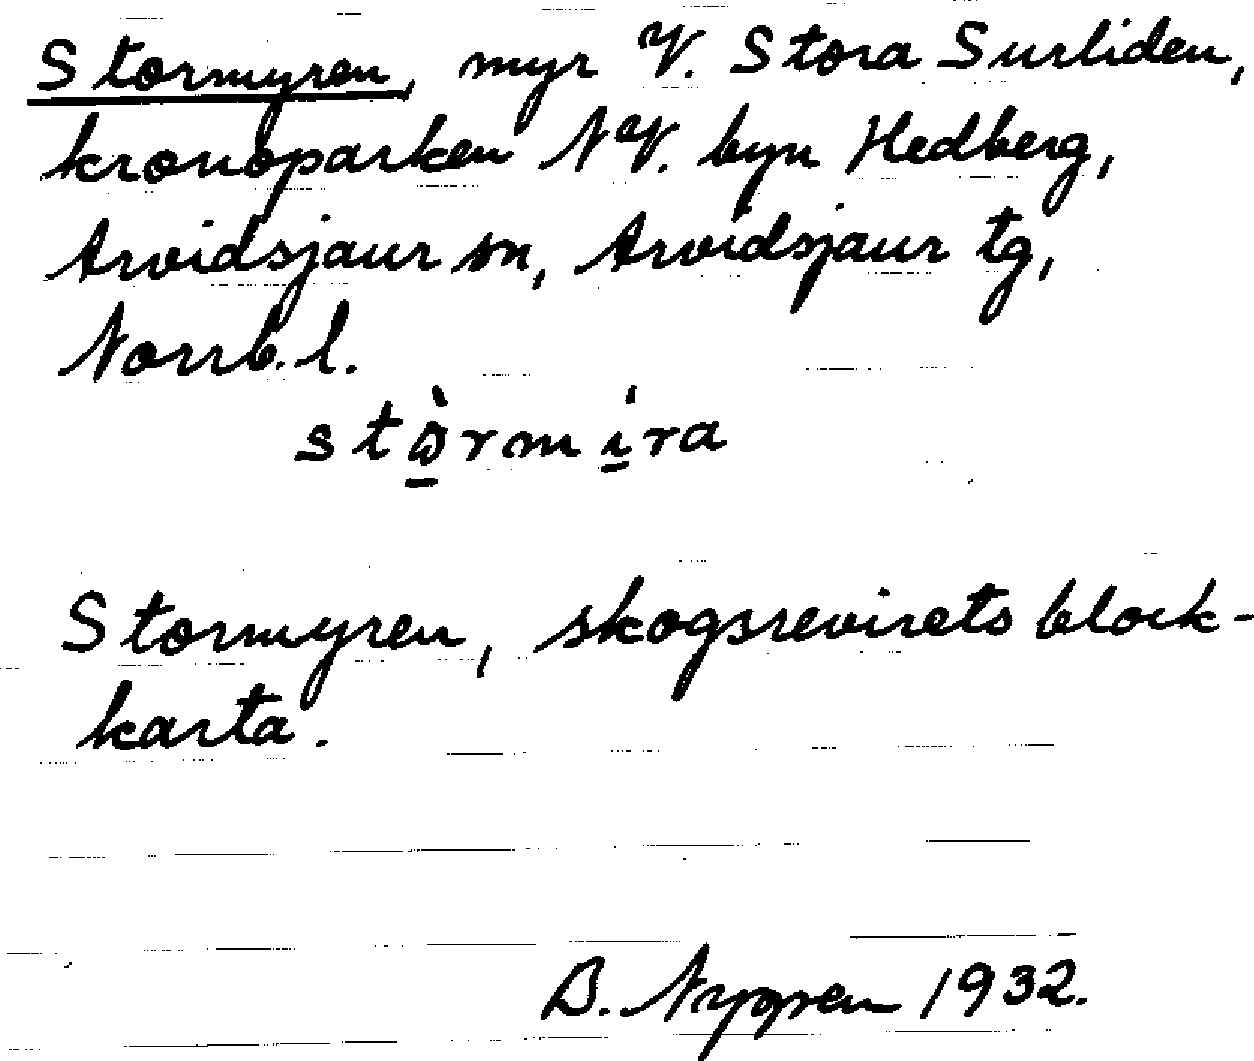 Stormyren, myr V. Stora Surliden,
kronoparken NV. byn Hedberg,
Arvidsjaur sn, Arvidsjaur tg,
Norrb. l.
Stormyren, skogsrevirets block-
karta.
B. Nygren 1932.